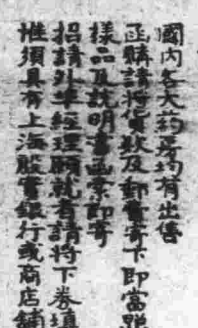 國內各大葯房均有出售
函購請將貨款及郵費寄下即當郵
樣品及說明書函索即寄
招請外埠經理願就者請將下券填
惟須具有上海殷實銀行或商店舖